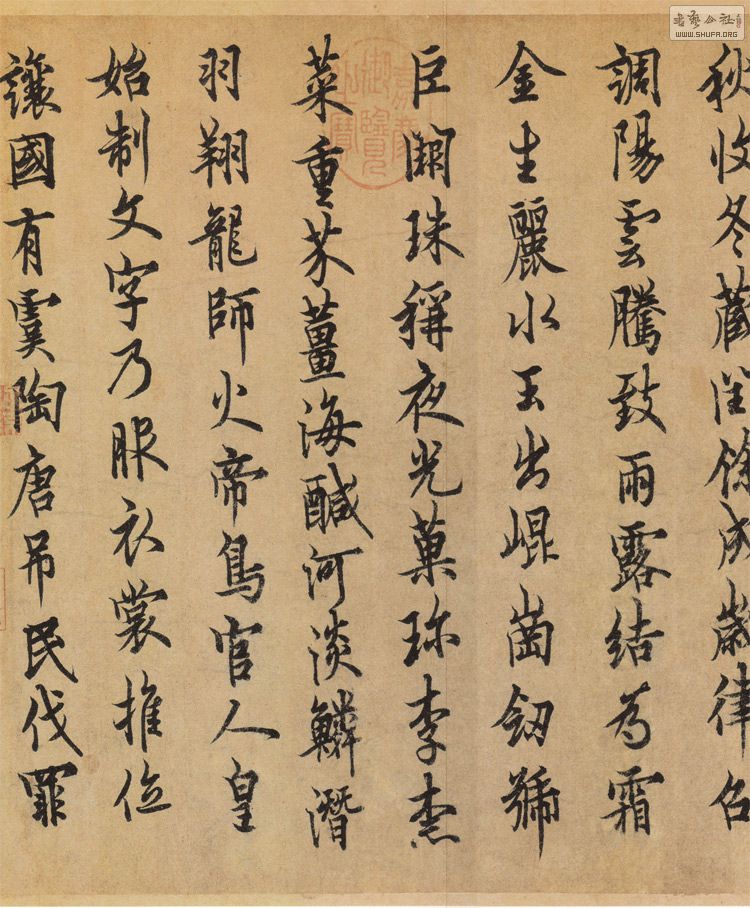 秋收冬蔵閏餘成歲律召
調陽雲騰致雨露結為霜
金生麗水玉出崐崗劒號
巨闕珠稱夜光菓珎李柰
菜重芥薑海醎河淡鱗潛
羽翔龍師火帝鳥官人皇
始制文字乃服衣裳推位
讓國有虞陶唐吊民伐罪
WWW.SHUFA.ORG